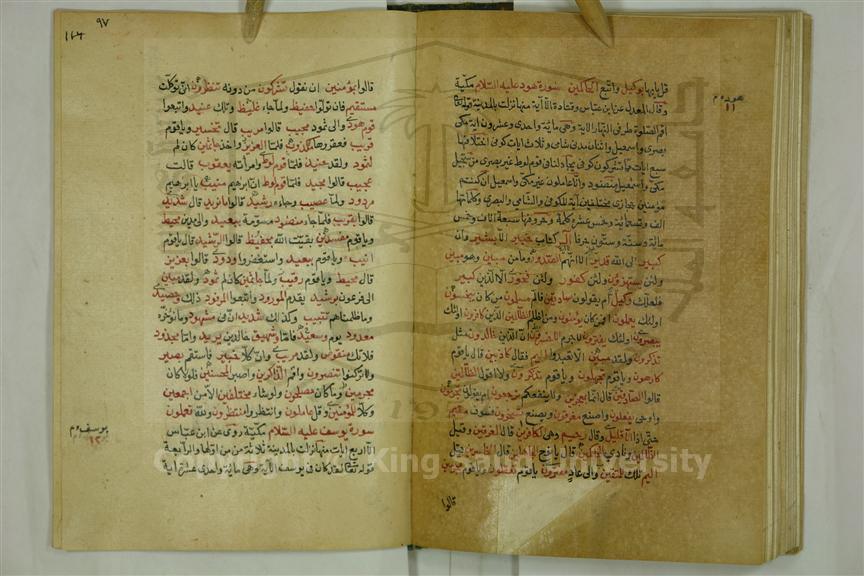 هود ١١
قل يايها بوكيل واتبع الحاكمين سورة هود عليه السلام مكية
وقال المعدل عن ابن عباس وقتادة الا آية منها نزلت بالمدينة قوله تعالى
اقم الصلوة طرفي النهار الآية وهي مائة واحدى وعشرون آية مكي
بصري واسمعيل واثنان مدني شامي وثلاث ايات كوفي اختلافها
سبع ايات مما تشركون كوفي يجادلنا في قوم لوط غير بصري من سجيل
مكي واسمعيل منضود وانا عاملون غير مكي واسمعيل ان كنتم
مؤمنين حجازي
الف وتسعمائة وخمس عشرة كلمة وحروفها سبعة آلاف وخمس
مائة وستة وستون حرفا الر كتاب خبير الا بشير وان
كبير الى الله قدير الا انهم الصدور وما من مبين وهو مبين
ولئن يستهزؤن ولئن كفور ولئن فخور الا الذين كبير
فلعلك وكيل ام يقولون صادقين فالم مسلمون من كان يبخسون
اولئك يعملون افمن كان يؤمنون ومن اظلم الظالمين الذين كافرون اولئك
يبصرون اولئك يفترون لاجرم الاخسرون ان الذين خالدون مثل
تذكرون ولقد مبين الا تعبدوا اليم فقال كاذبين قال يا قوم
كارهون ويا قوم تجهلون ويا قوم تذكرون ولا اقول الظالمين
قالوا الصادقين قال انما بمعجزين ولا ينفعكم ترجعون ام يقولون تجرمون
واوحي يفعلون واصنع مغرقون ويصنع تسخرون فسوف مقيم
حتى اذا قليل وقال رحيم وهي الكافرين قال المغرقين وقيل
الظالمين ونادى الحاكمين قال يا نوح الجاهلين قال الخاسرين قيل
اليم تلك للمتقين والى عاد مفترون يا قوم تعقلون ويا قوم مجرمين
قالوا
٩٧
قالوا بمؤمنين ان نقول تشركون من دونه تنظرون اني توكلت
مستقيم فان تولوا حفيظ ولما جاء غليظ وتلك عنيد واتبعوا
قوم هود والى ثمود مجيب قالوا مريب قال تخسير ويا قوم
قريب فعقروها مكذوب فلما العزيز واخذ جاثمين كان لم
لثمود ولقد حنيذ فلما قوم لوط وامراته يعقوب قالت
عجيب قالوا مجيد فلما قوم لوط ان ابرهيم منيب يا ابرهيم
مردود ولما عصيب وجاءه رشيد قالوا ما نريد قال شديد
قالوا بقريب فلما جاء منضود مسومة ببعيد والى مدين محيط
ويا قوم مفسدين بقيت الله بحفيظ قالوا الرشيد قال يا قوم
انيب ويا قوم ببعيد واستغفروا ودود قالوا بعزيز
قال محيط ويا قوم رقيب ولما جاثمين كان لم ثمود ولقد مبين
الى فرعون برشيد يقدم المورود واتبعوا المرفود ذلك وحصيد
وما ظلمناهم تتبيب وكذلك شديد ان في مشهود وما نؤخره
معدود يوم وسعيد فاما وشهيق خالدين يريد واما مجذوذ
فلا تك منقوص ولقد مريب وان كلا خبير فاستقم بصير
ولا تركنوا تنصرون واقم الذاكرين واصبر المحسنين فلولا كان
مجرمين وما كان مصلحون ولو شاء مختلفين الا من اجمعين
وكلا للمؤمنين وقل عاملون وانتظروا منتظرون ولله تعملون
سورة يوسف عليه السلام مكية روى عن ابن عباس
الا اربع ايات منها نزلت بالمدينة ثلاثة من اولها والرابعة
قوله تعالى لقد كان في يوسف الآية وهي مائة واحدى عشر آية
يوسف ١٢
Copyright © King Saud University